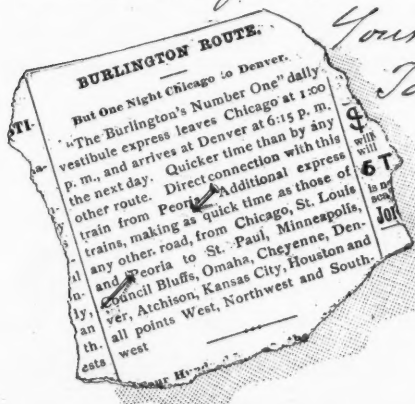 BURLINGTON ROUTE.
But One Night Chicago to Denver.
"The Burlington's Number One" daily
vestibule express leaves Chicago at 1:00
p. m., and arrives at Denver at 6:15 p. m.
the next day. Quicker time than by any
other route. Direct connection with this
train from Peoria. Additional express
trains, making as quick time as those of
any other road, from Chicago, St. Louis
and Peoria to St. Paul, Minneapolis,
Council Bluffs, Omaha, Cheyenne, Den-
ver, Atchison, Kansas City, Houston and
all points West, Northwest and South-
west
TI-
ly,
an
th.
ests
will
will
5 T